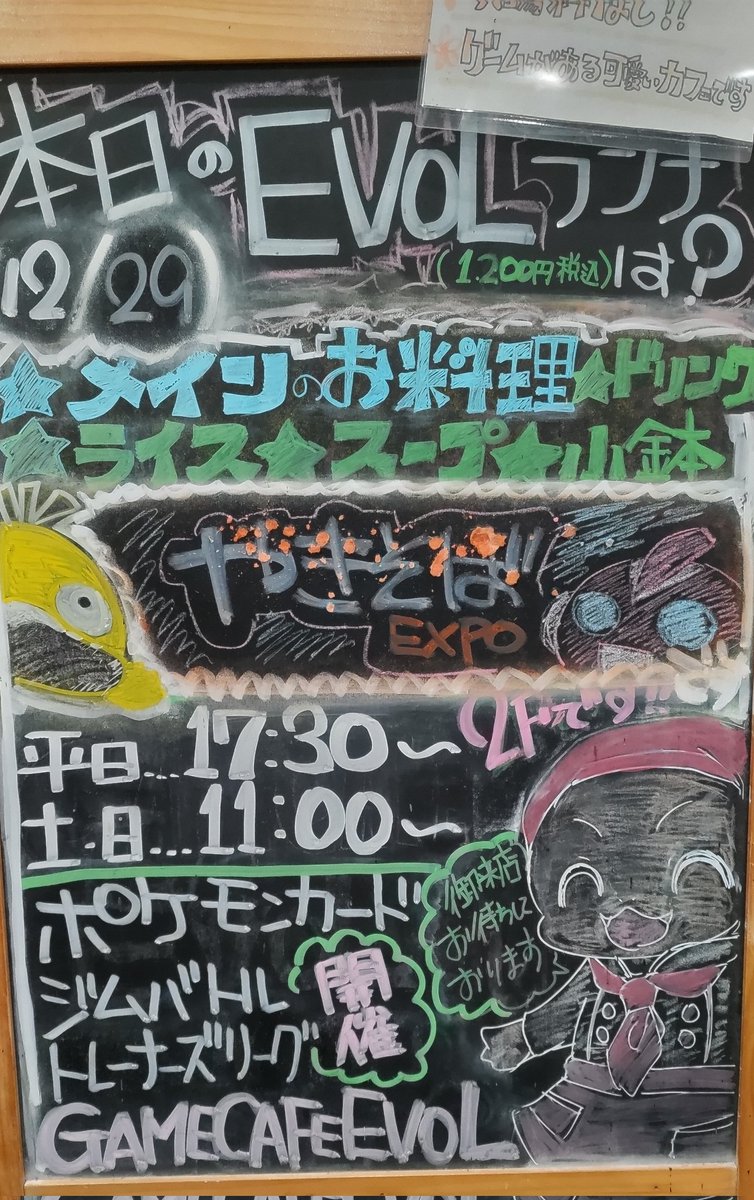 ゲームがある可愛いカフェです
本日のEVOLランチ
12/29 (1.200円税込)は?
★メインのお料理★ドリンク
★ライス★スープ★小鉢
やきそば
EXPO
です
2Fです!!
平日....17:30〜
土・日....11:00〜
御来店
お待ちして
おります
ポケモンカード
ジムバトル
トレーナーズリーグ
開催
GAMECAFEEVOL